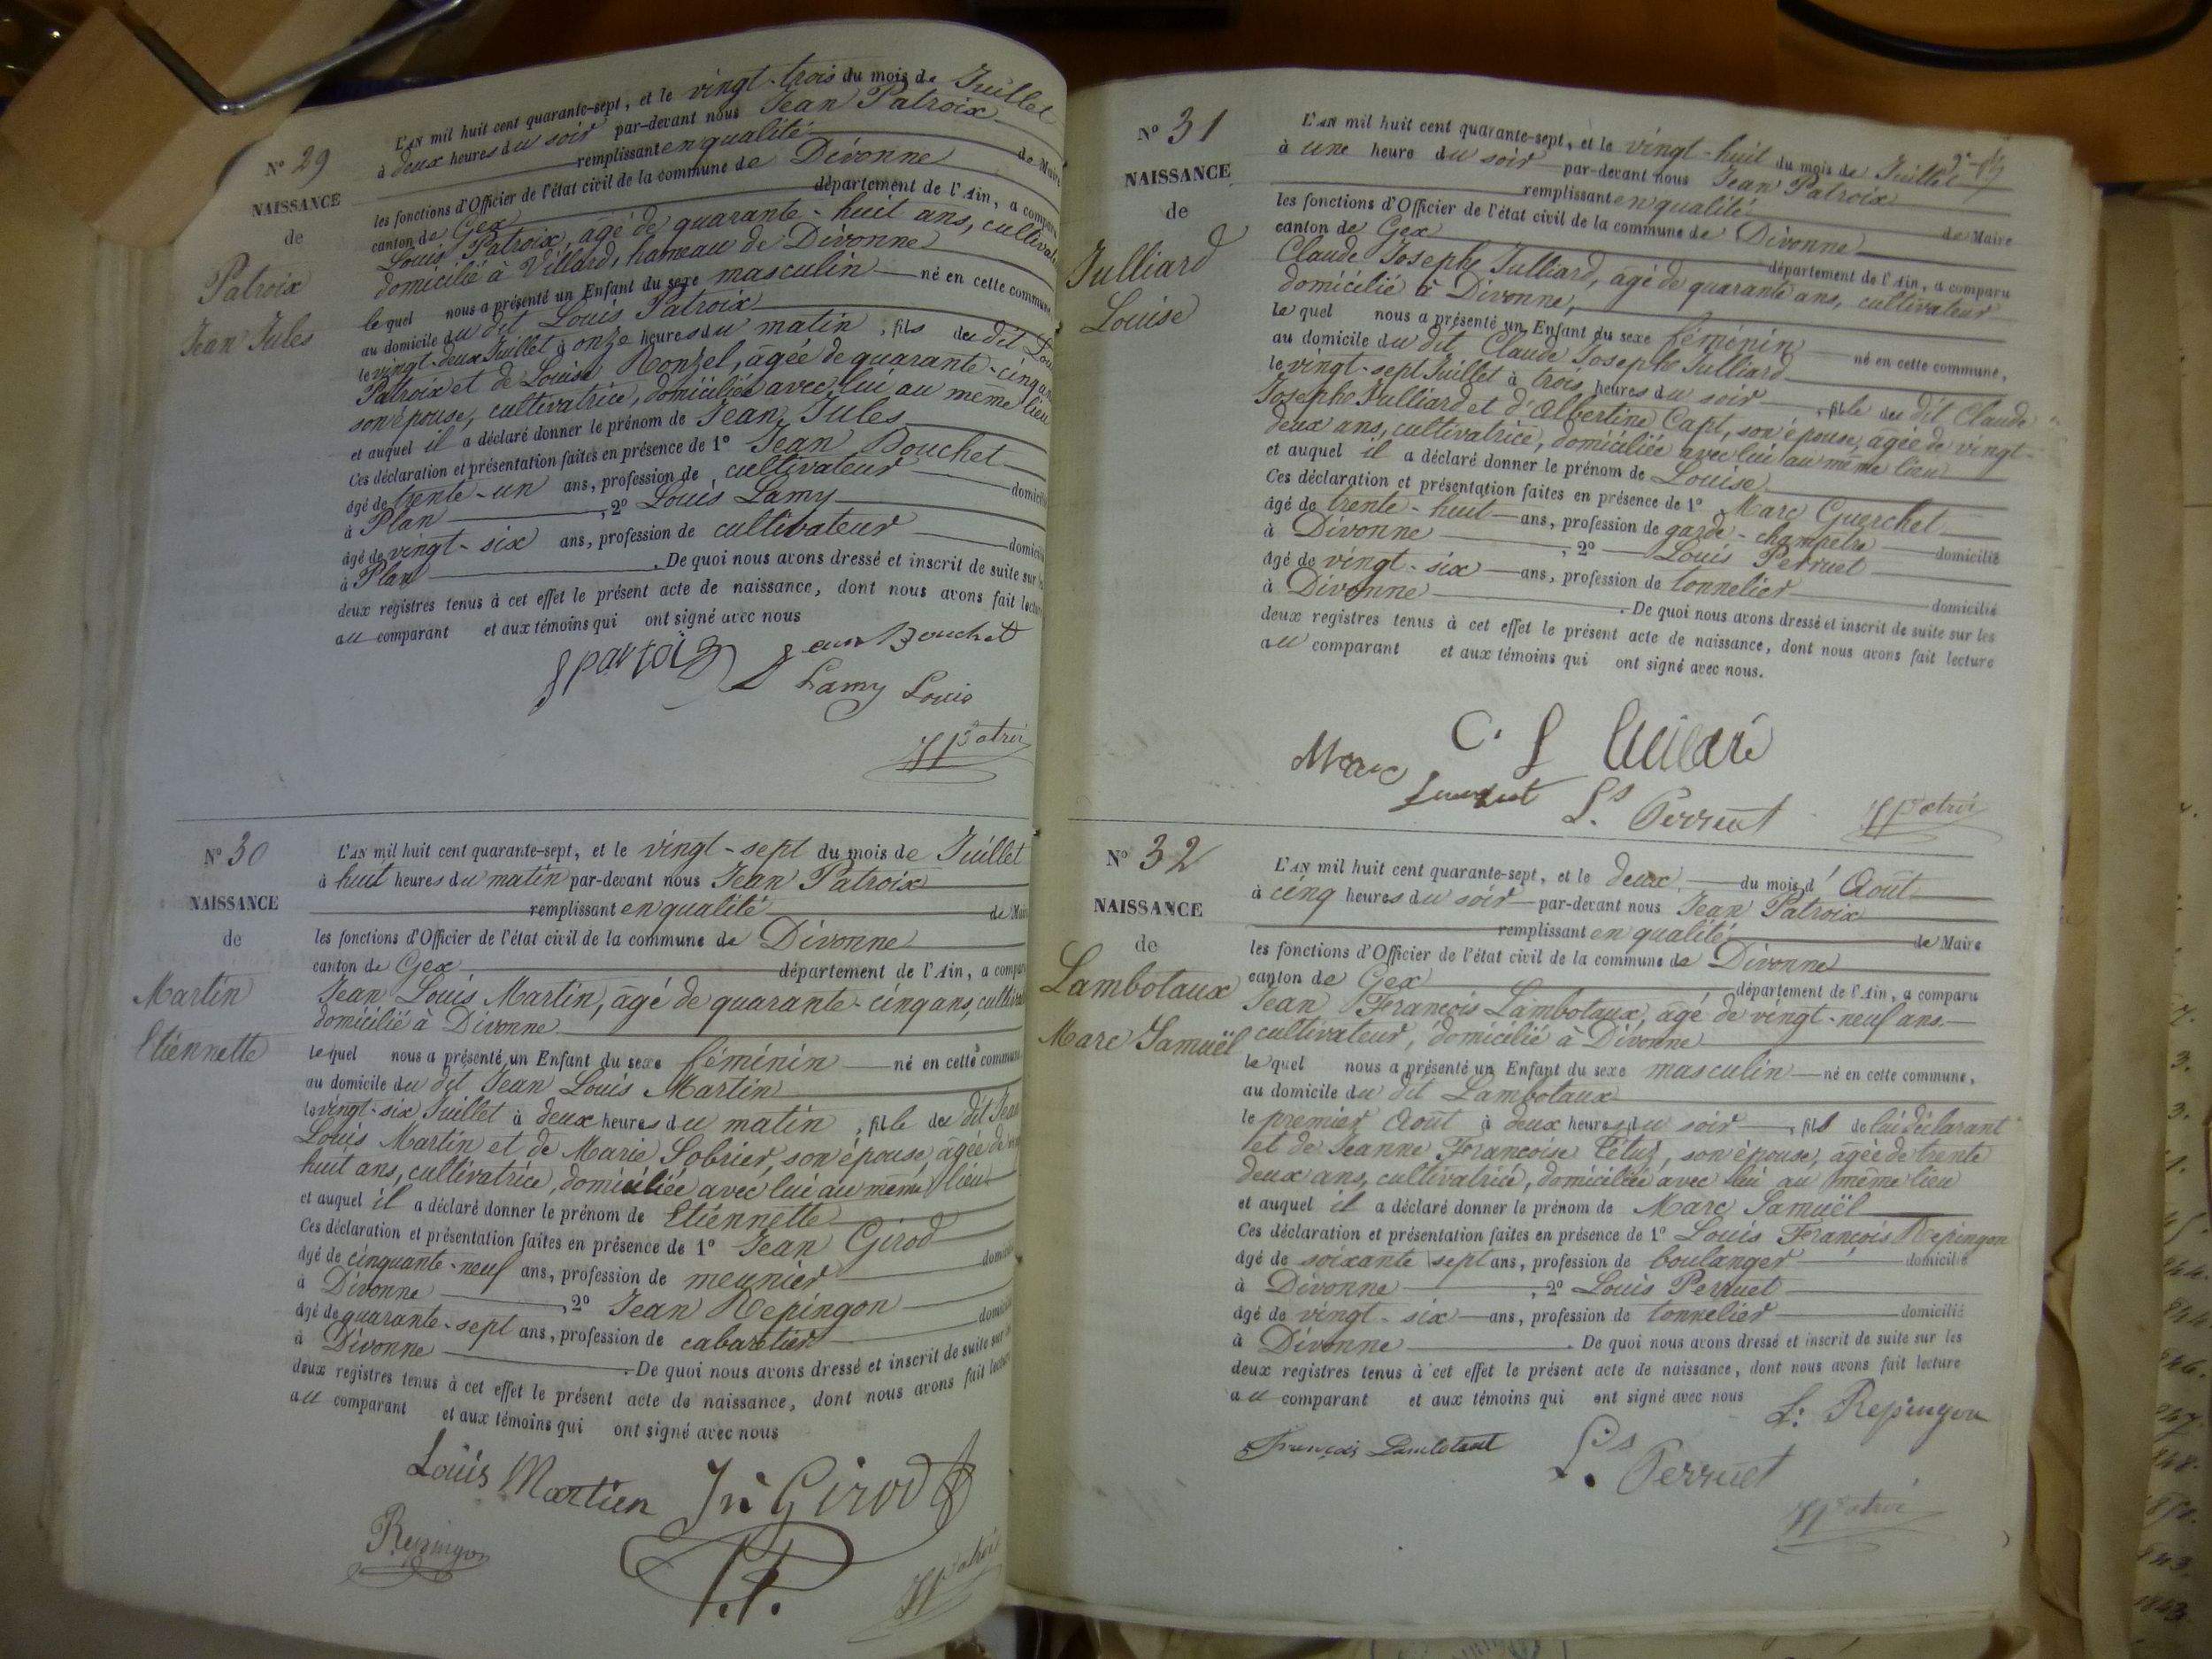 N° 29
NAISSANCE
de
Patroix
Jean Jules
L'AN mil huit cent quarante-sept, et le vingt-trois du mois de Juillet
à deux heures du soir par-devant nous Jean Patroix
remplissant en qualité de Maire
les fonctions d'Officier de l'état civil de la commune de Divonne
canton de Gex département de l'Ain, a comparu
Louis Patroix, agé de quarante-huit ans, cultivat
domicilié à Villard, hameau de Divonne
le quel nous a présenté un Enfant du sexe masculin né en cette commune
au domicile du dit Louis Patroix
le vingt-deux Juillet à onze heures du matin, fils du dit Louis
Patroix et de Louise Ronzel, âgée de quarante-cinq ans
son épouse, cultivatrice, domiciliée avec lui au même lieu
et auquel il a déclaré donner le prénom de Jean Jules
Ces déclaration et présentation faites en présence de 1° Jean Bouchet
âgé de trente-un ans, profession de cultivateur domicilié
à Plan , 2° Louis Lamy
âgé de vingt-six ans, profession de cultivateur domicilié
à Plan . De quoi nous avons dressé et inscrit de suite sur les
deux registres tenus à cet effet le présent acte de naissance, dont nous avons fait lecture
au comparant et aux témoins qui ont signé avec nous
jean Bouchet
Lamy Louis
N° 30
NAISSANCE
de
Martin
Etiennette
L'AN mil huit cent quarante-sept, et le vingt-sept du mois de Juillet
à huit heures du matin par-devant nous Jean Patroix
remplissant en qualité de Maire
les fonctions d'Officier de l'état civil de la commune de Divonne
canton de Gex département de l'Ain, a comparu
Jean Louis Martin, âgé de quarante-cinq ans, cultivat
domicilié à Divonne
le quel nous a présenté un Enfant du sexe féminin né en cette commune
au domicile du dit Jean Louis Martin
le vingt-six Juillet à deux heures du matin, fille du dit Jean
Louis Martin et de Marie Sobrier, son épouse, agée de
huit ans, cultivatrice, domiciliée avec lui au même lieu
et auquel il a déclaré donner le prénom de Etiennette
Ces déclaration et présentation faites en présence de 1° Jean Girod
âgé de cinquante-neuf ans, profession de meunier domicilié
à Divonne , 2° Jean Repingon
âgé de quarante-sept ans, profession de cabaretier domicilié
à Divonne . De quoi nous avons dressé et inscrit de suite sur les
deux registres tenus à cet effet le présent acte de naissance, dont nous avons fait lecture
au comparant et aux témoins qui ont signé avec nous
Louis Martien Jn Girod
Repingon
N° 31
NAISSANCE
de
Julliard
Louise
L'AN mil huit cent quarante-sept, et le vingt-huit du mois de Juillet
à une heure du soir par-devant nous Jean Patroix
remplissant en qualité de Maire
les fonctions d'Officier de l'état civil de la commune de Divonne
canton de Gex département de l'Ain, a comparu
Claude Josephe Julliard, âgé de quarante ans, cultivateur
domicilié à Divonne,
le quel nous a présenté un Enfant du sexe féminin né en cette commune,
au domicile du dit Claude Josephe Julliard
le vingt-sept Juillet à trois heures du soir , fille du dit Claude
Josephe Julliard et d'Albertine Capt, son épouse, âgée de vingt-
deux ans, cultivatrice, domiciliée avec lui au même lieu
et auquel il a déclaré donner le prénom de Louise
Ces déclaration et présentation faites en présence de 1° Marc Guerchet
âgé de trente-huit ans, profession de garde-champetre domicilié
à Divonne , 2° Louis Perruet
âgé de vingt-six ans, profession de tonnelier domicilié
à Divonne . De quoi nous avons dressé et inscrit de suite sur les
deux registres tenus à cet effet le présent acte de naissance, dont nous avons fait lecture
au comparant et aux témoins qui ont signé avec nous.
Marc
Ls Perruet
N° 32
NAISSANCE
de
Lambotaux
Marc Samuël
L'AN mil huit cent quarante-sept, et le deux du mois d'Août
à cinq heures du soir par-devant nous Jean Patroix
remplissant en qualité de Maire
les fonctions d'Officier de l'état civil de la commune de Divonne
canton de Gex département de l'Ain, a comparu
Jean François Lambotaux, âgé de vingt-neuf ans
cultivateur, domicilié à Divonne
le quel nous a présenté un Enfant du sexe masculin né en cette commune,
au domicile du dit Lambotaux
le premier Août à deux heures du soir , fils de lui déclarant
et de Jeanne Françoise Tétuz, son épouse, âgée de trente
deux ans, cultivatrice, domiciliée avec lui au même lieu
et auquel il a déclaré donner le prénom de Marc Samuël
Ces déclaration et présentation faites en présence de 1° Louis François Repingon
âgé de soixante sept ans, profession de boulanger domicilié
à Divonne , 2° Louis Perruet
âgé de vingt-six ans, profession de tonnelier domicilié
à Divonne . De quoi nous avons dressé et inscrit de suite sur les
deux registres tenus à cet effet le présent acte de naissance, dont nous avons fait lecture
au comparant et aux témoins qui ont signé avec nous
L: Repingon
Ls Perruet